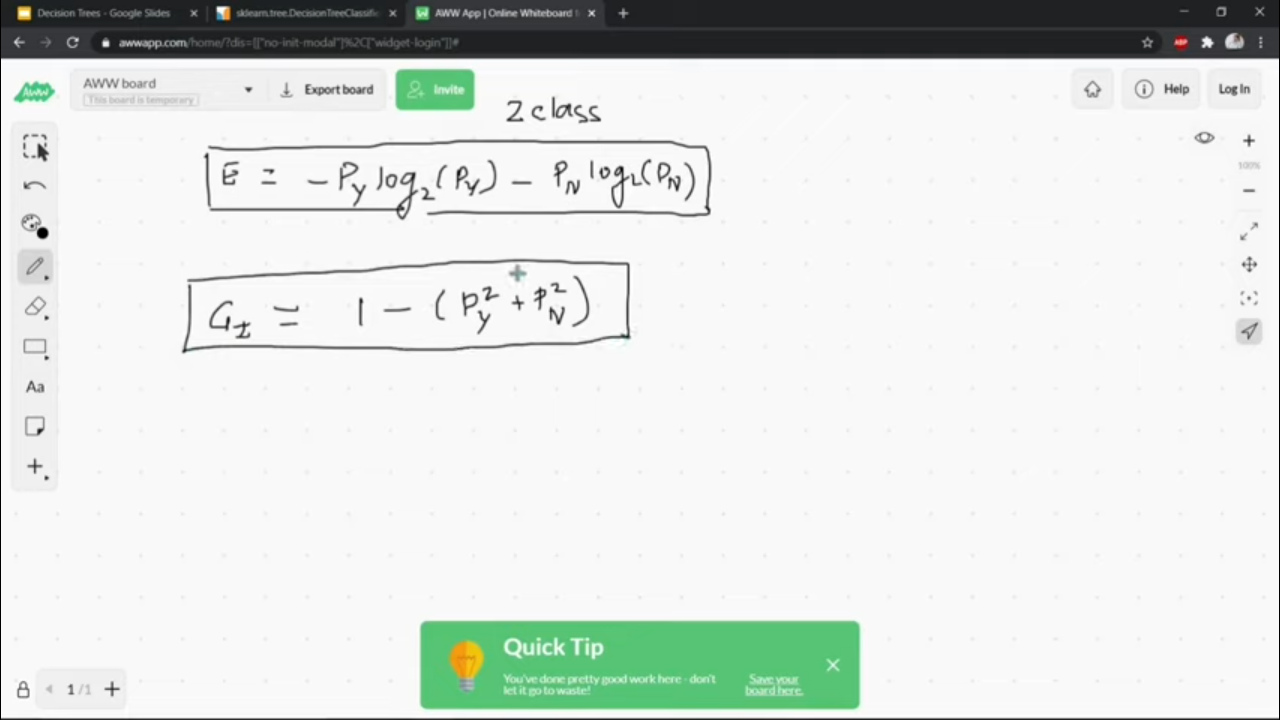 Decision Trees - Google Slides
sklearn.tree.DecisionTreeClassifi
AWW App | Online Whiteboard
awwapp.com/home/?dis=[["no-init-modal"]%2C["widget-login"]]#
ABP
AWW
AWW board
This board is temporary
Export board
Invite
Help
Log In
2 class
100%
E = - P_Y log_2 (P_Y) - P_N log_2 (P_N)
G_I = 1 - (P_Y^2 + P_N^2)
Aa
Quick Tip
You've done pretty good work here - don't
let it go to waste!
Save your
board here.
1 /1